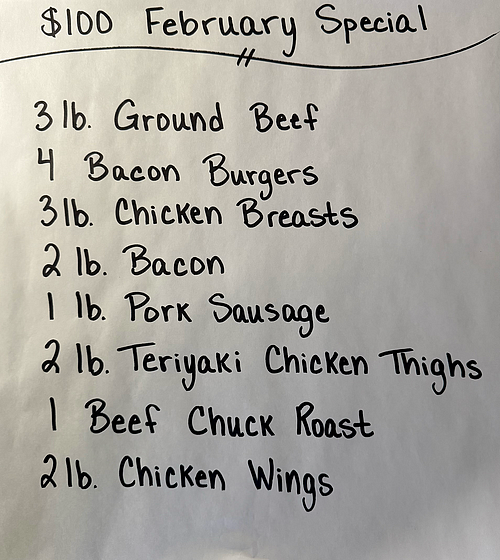 $100 February Special
3 lb. Ground Beef
4 Bacon Burgers
3 lb. Chicken Breasts
2 lb. Bacon
1 lb. Pork Sausage
2 lb. Teriyaki Chicken Thighs
1 Beef Chuck Roast
2 lb. Chicken Wings